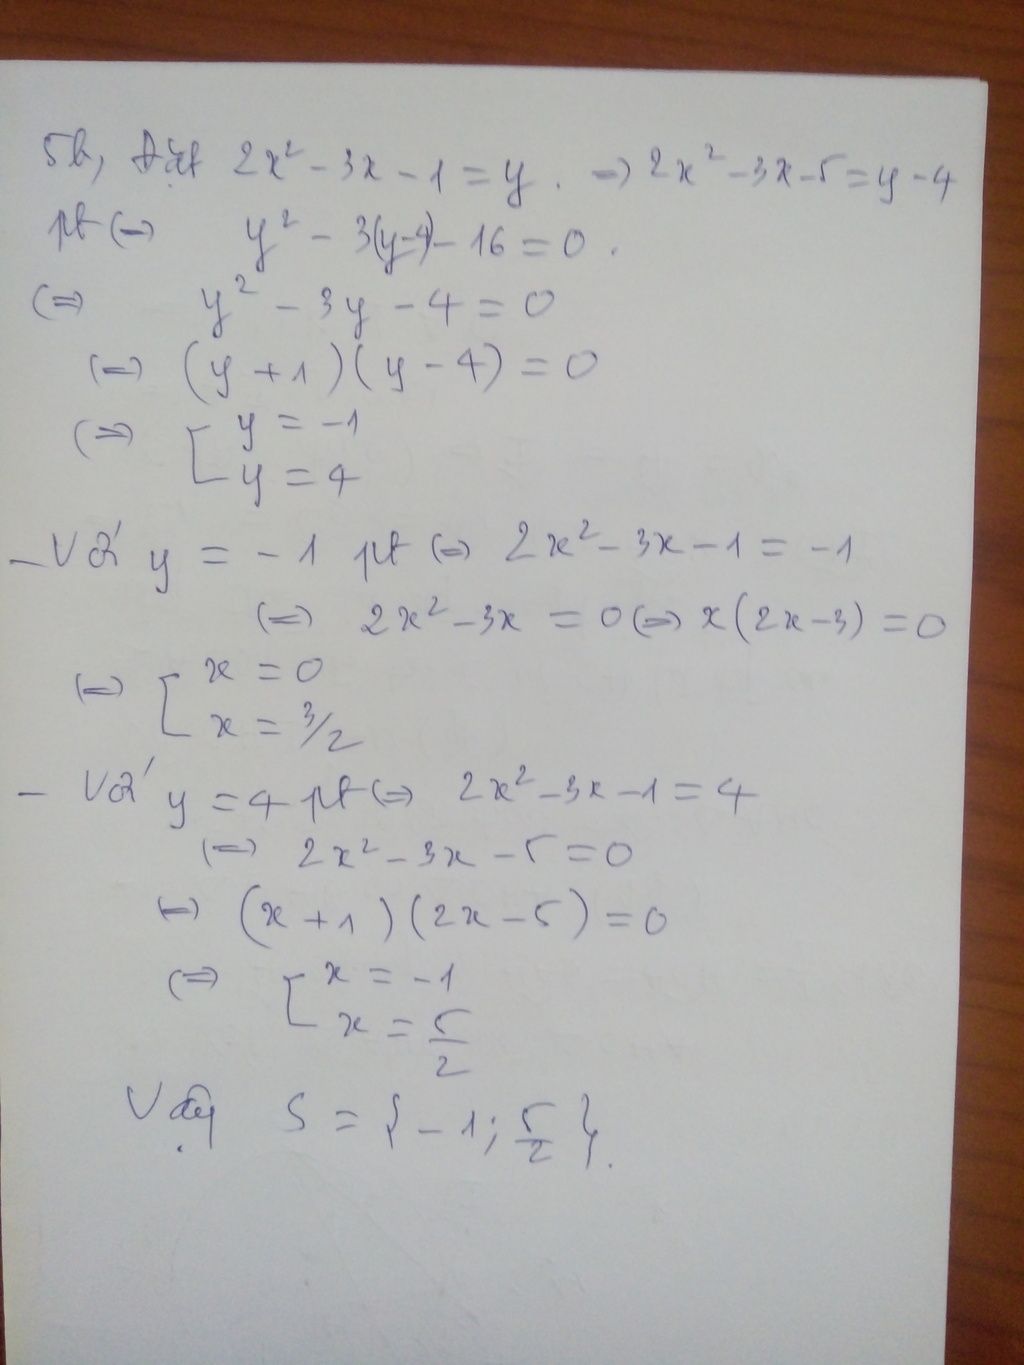 5b, Đặt 2x² - 3x - 1 = y . => 2x² - 3x - 5 = y - 4
pt <=> y² - 3(y-4) - 16 = 0 .
<=> y² - 3y - 4 = 0
<=> (y + 1)(y - 4) = 0
<=> [ y = -1
y = 4
- Với y = -1 pt <=> 2x² - 3x - 1 = -1
<=> 2x² - 3x = 0 <=> x(2x - 3) = 0
<=> [ x = 0
x = 3/2
- Với y = 4 pt <=> 2x² - 3x - 1 = 4
<=> 2x² - 3x - 5 = 0
<=> (x + 1)(2x - 5) = 0
<=> [ x = -1
x = 5/2
Vậy S = { -1; 5/2 }.